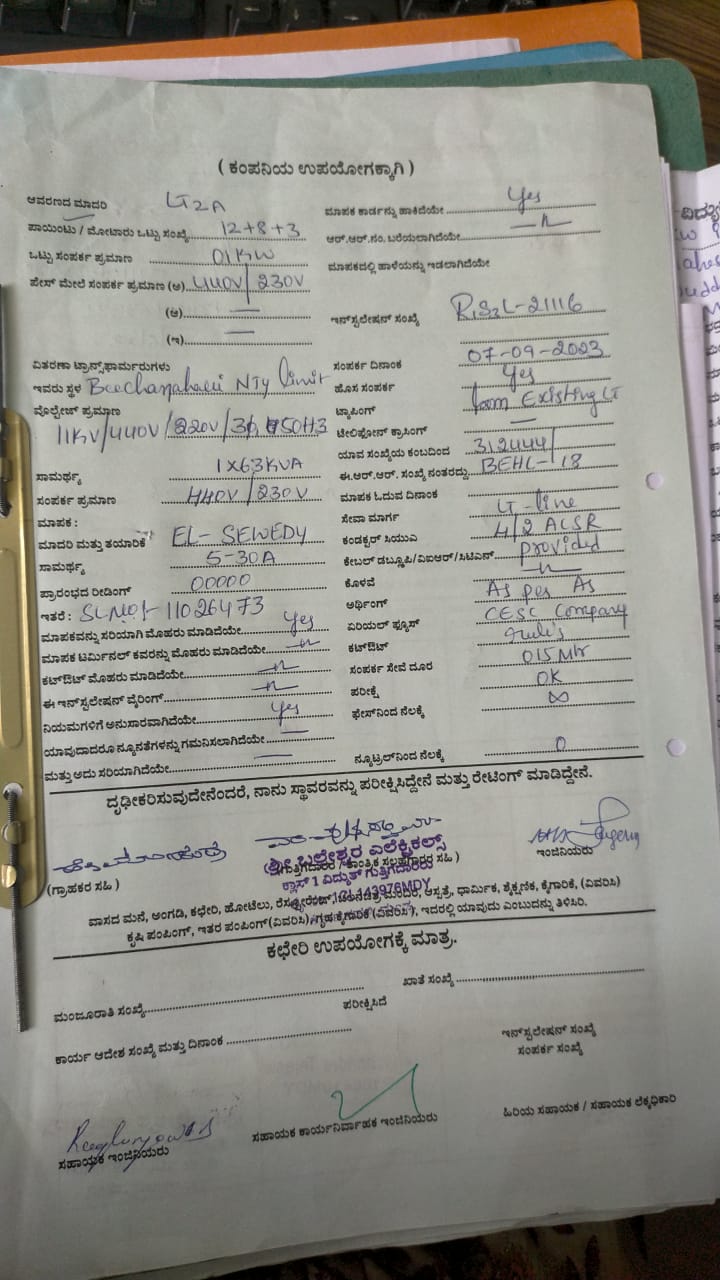 ( ಕಂಪನಿಯ ಉಪಯೋಗಕ್ಕಾಗಿ )
ಆವರಣದ ಮಾದರಿ LT2A
ಪಾಯಿಂಟು / ಮೋಟಾರು ಒಟ್ಟು ಸಂಖ್ಯೆ 12+8+3
ಒಟ್ಟು ಸಂಪರ್ಕ ಪ್ರಮಾಣ 01KW
ಪೇಸ್ ಮೇಲೆ ಸಂಪರ್ಕ ಪ್ರಮಾಣ (ಅ) 440V/230V
(ಆ) —
(ಇ) —
ವಿತರಣಾ ಟ್ರಾನ್ಸ್‌ಫಾರ್ಮರುಗಳು
ಇವರು ಸ್ಥಳ NTY limit
ವೊಲ್ಟೇಜ್ ಪ್ರಮಾಣ
11KV/440V/220V/3ϕ,
ಸಾಮರ್ಥ್ಯ 1X63KVA
ಸಂಪರ್ಕ ಪ್ರಮಾಣ 440V/230V
ಮಾಪಕ :
ಮಾದರಿ ಮತ್ತು ತಯಾರಿಕೆ EL- SEWEDY
ಸಾಮರ್ಥ್ಯ 5-30A
ಪ್ರಾರಂಭದ ರೀಡಿಂಗ್ 00000
ಇತರೆ : SLNO:- 11026473
ಮಾಪಕವನ್ನು ಸರಿಯಾಗಿ ಮೊಹರು ಮಾಡಿದೆಯೇ Yes
ಮಾಪಕ ಟರ್ಮಿನಲ್ ಕವರನ್ನು ಮೊಹರು ಮಾಡಿದೆಯೇ —n—
ಕಟ್‌ಔಟ್ ಮೊಹರು ಮಾಡಿದೆಯೇ —n—
ಈ ಇನ್‌ಸ್ಟಲೇಷನ್ ವೈರಿಂಗ್ —n—
ನಿಯಮಗಳಿಗೆ ಅನುಸಾರವಾಗಿದೆಯೇ Yes
ಯಾವುದಾದರೂ ನ್ಯೂನತೆಗಳನ್ನು ಗಮನಿಸಲಾಗಿದೆಯೇ —
ಮತ್ತು ಅದು ಸರಿಯಾಗಿದೆಯೇ —
ಮಾಪಕ ಕಾರ್ಡನ್ನು ಹಾಕಿದೆಯೇ Yes
ಆರ್.ಆರ್.ನಂ. ಬರೆಯಲಾಗಿದೆಯೇ —n—
ಮಾಪಕದಲ್ಲಿ ಹಾಳೆಯನ್ನು ಇಡಲಾಗಿದೆಯೇ
ಇನ್‌ಸ್ಟಲೇಷನ್ ಸಂಖ್ಯೆ 21116
ಸಂಪರ್ಕ ದಿನಾಂಕ 07-09-2023
ಹೊಸ ಸಂಪರ್ಕ Yes
ಟ್ಯಾಪಿಂಗ್ from Existing LT
ಟೆಲಿಫೋನ್ ಕ್ರಾಸಿಂಗ್ —
ಯಾವ ಸಂಖ್ಯೆಯ ಕಂಬದಿಂದ 312444/
ಈ.ಆರ್.ಆರ್. ಸಂಖ್ಯೆ ನಂತರದ್ದು BEHL-18
ಮಾಪಕ ಓದುವ ದಿನಾಂಕ
ಸೇವಾ ಮಾರ್ಗ LT-line
ಕಂಡಕ್ಟರ್ ಸಿಯುವಿ 4/2 ACSR
ಕೇಬಲ್ ಡಬ್ಲೂಪಿ/ಎಐಆರ್/ಸಿಟಿಎನ್ provided
ಕೊಳವೆ —n—
ಅರ್ಥಿಂಗ್ As per As
ಏರಿಯಲ್ ಫ್ಯೂಸ್ CESC Company
ಕಟ್‌ಔಟ್ rule's
ಸಂಪರ್ಕ ಸೇವೆ ದೂರ 015Mtr
ಪರೀಕ್ಷೆ OK
ಫೇಸ್‌ನಿಂದ ನೆಲಕ್ಕೆ ∞
ನ್ಯೂಟ್ರಲ್‌ನಿಂದ ನೆಲಕ್ಕೆ 0
ದೃಢೀಕರಿಸುವುದೇನೆಂದರೆ, ನಾನು ಸ್ಥಾವರವನ್ನು ಪರೀಕ್ಷಿಸಿದ್ದೇನೆ ಮತ್ತು ರೇಟಿಂಗ್ ಮಾಡಿದ್ದೇನೆ.
(ಗ್ರಾಹಕರ ಸಹಿ )
ಶ್ರೀ ಎಲೆಕ್ಟ್ರಿಕಲ್ಸ್
ಕ್ಲಾಸ್ 1 ವಿದ್ಯುತ್ ಗುತ್ತಿಗೆದಾರರು
ಇಂಜಿನಿಯರು
ವಾಸದ ಮನೆ, ಅಂಗಡಿ, ಕಛೇರಿ, ಹೋಟೆಲು, ಆಸ್ಪತ್ರೆ, ಧಾರ್ಮಿಕ, ಶೈಕ್ಷಣಿಕ, ಕೈಗಾರಿಕೆ, (ವಿವರಿಸಿ)
ಕೃಷಿ ಪಂಪಿಂಗ್, ಇತರ ಪಂಪಿಂಗ್(ವಿವರಿಸಿ), ಗೃಹ ಕೈಗಾರಿಕೆ (ವಿವರಿಸಿ), ಇದರಲ್ಲಿ ಯಾವುದು ಎಂಬುದನ್ನು ತಿಳಿಸಿರಿ.
ಕಛೇರಿ ಉಪಯೋಗಕ್ಕೆ ಮಾತ್ರ.
ಮಂಜೂರಾತಿ ಸಂಖ್ಯೆ
ಖಾತೆ ಸಂಖ್ಯೆ
ಪರೀಕ್ಷಿಸಿದೆ
ಕಾರ್ಯ ಆದೇಶ ಸಂಖ್ಯೆ ಮತ್ತು ದಿನಾಂಕ
ಇನ್‌ಸ್ಟಲೇಷನ್ ಸಂಖ್ಯೆ
ಸಂಪರ್ಕ ಸಂಖ್ಯೆ
ಸಹಾಯಕ ಇಂಜಿನಿಯರು
ಸಹಾಯಕ ಕಾರ್ಯನಿರ್ವಾಹಕ ಇಂಜಿನಿಯರು
ಹಿರಿಯ ಸಹಾಯಕ / ಸಹಾಯಕ ಲೆಕ್ಕಧಿಕಾರಿ